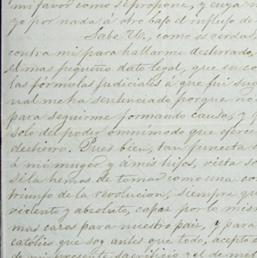 mi favor como se propone, y cuya
yo por nada á otro bajo el influjo de
Sabe U., como es verdad,
contra mi para hallarme desterrado,
el mas pequeño dato legal, que en
las fórmulas judiciales á que fui
nal me ha sentenciado porque no
para seguirme formando causa, y
solo del poder omnímodo que ejerce
destierro. Pues bien, tan funesta
á mi muger y á mis hijos, victa
si la hemos de tomar como una
triunfo de la revolucion, siempre
violento y absoluto, capaz por lo
mas caras para nuestro pais, y para
católico que soy antes que todo, acepto
de mi presente sacrificio y el de